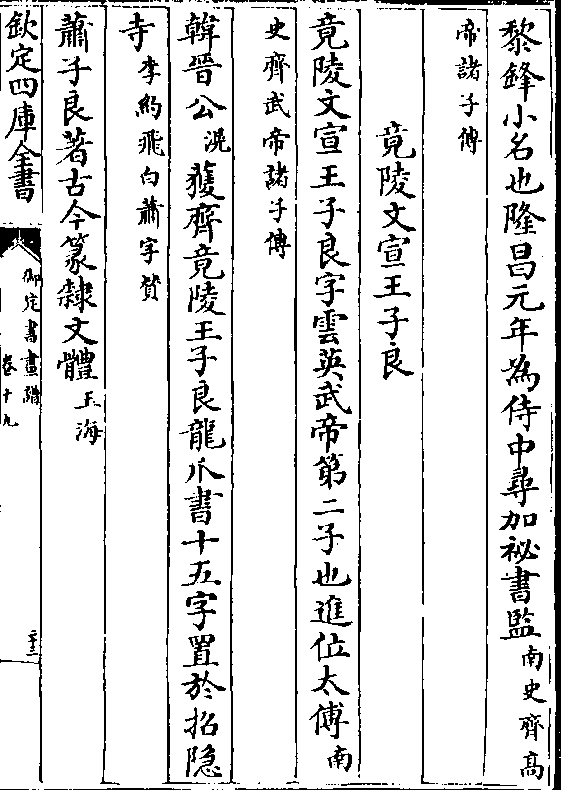 黎鋒小名也隆昌元年為侍中尋加祕書監南史齊高
帝諸子傳
竟陵文宣王子良
竟陵文宣王子良字雲英武帝第二子也進位太傅南
史齊武帝諸子傳
韓晉公滉獲齊竟陵王子良龍爪書十五字置於招隐
寺李約飛白蕭字贊
蕭子良著古今篆隸文體玉海
欽定四庫全書
御定書畫譜
卷十九